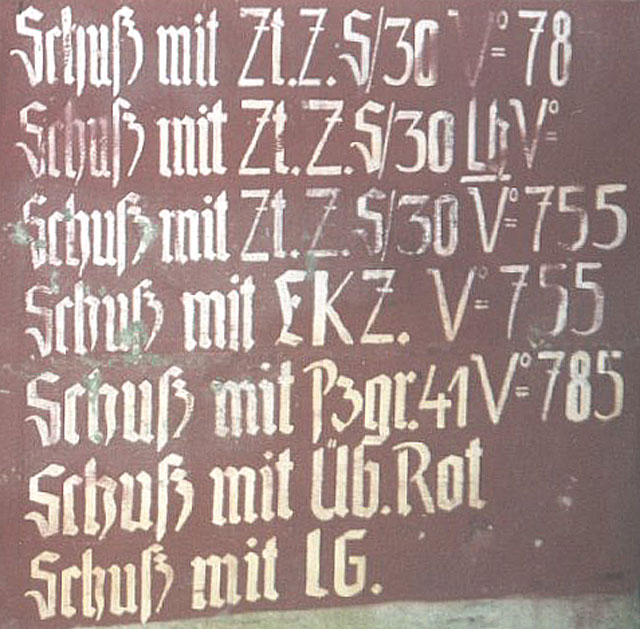 Schuß mit Zt.Z.S/30 V°= 78
Schuß mit Zt.Z.S/30 Lg V°=
Schuß mit Zt.Z.S/30 V°= 755
Schuß mit EKZ. V°= 755
Schuß mit Pzgr.41 V°= 785
Schuß mit Üb.Rot
Schuß mit LG.